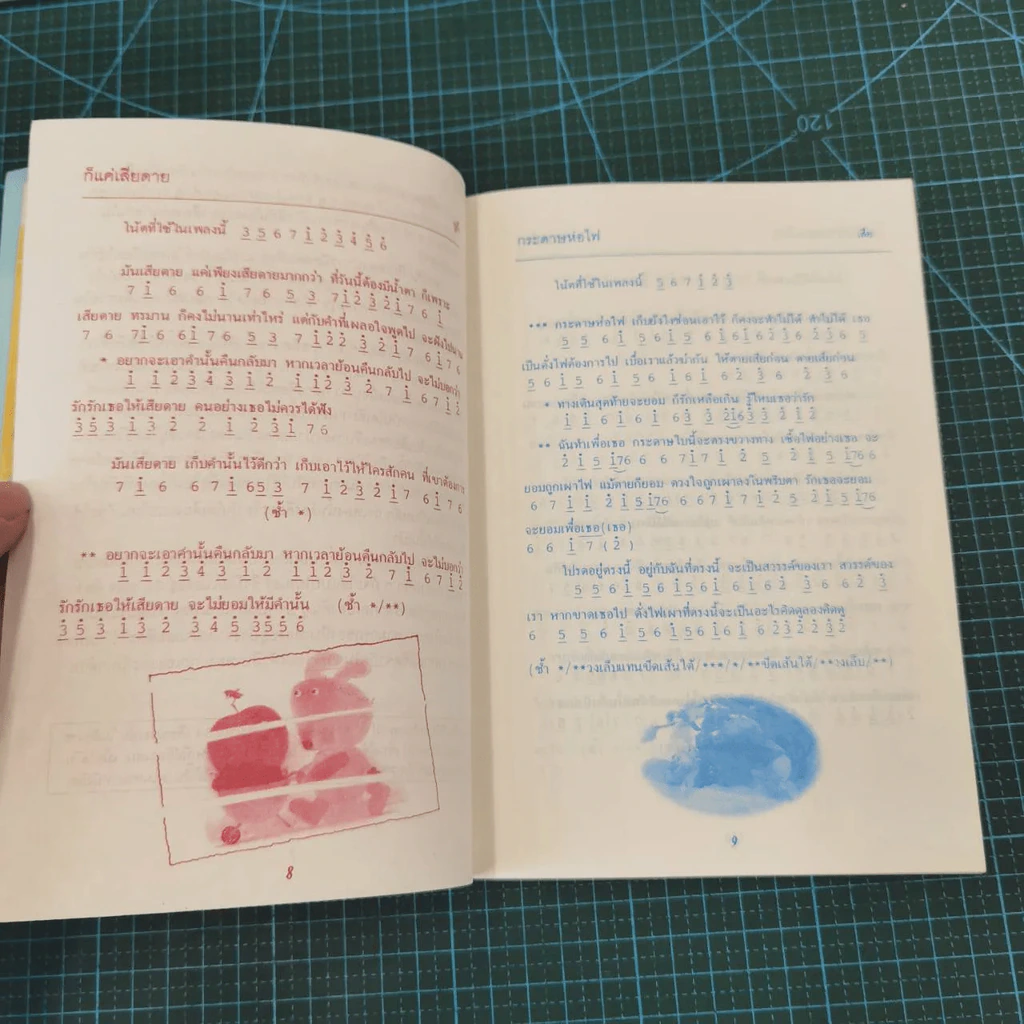 ก็แค่เสียดาย
โน้ตที่ใช้ในเพลงนี้ 3 5 6 7 1̇ 2̇ 3̇ 4̇ 5̇ 6̇
มันเสียดาย แค่เพียงเสียดายมากกว่า ที่วันนี้ต้องมีน้ำตา ก็เพราะ
7 1̇ 6 6 1̇ 7 6 5 3 7 1̇ 2̇ 3̇ 2̇ 1̇ 7 6 1̇
เสียดาย ทรมาน ก็คงไม่นานเท่าไหร่ แต่กับคำที่เผลอใจพูดไป จะฝังไปนาน
7 6 7 1̇ 6 6 1̇ 7 6 5 3 7 1̇ 2̇ 2̇ 3̇ 2̇ 1̇ 7 6 1̇ 7 6
* อยากจะเอาคำนั้นคืนกลับมา หากเวลาย้อนคืนกลับไป จะไม่บอกว่า
1̇ 1̇ 2̇ 3̇ 4̇ 3̇ 1̇ 2̇ 1̇ 1̇ 2̇ 3̇ 2̇ 7 1̇ 6 7 1̇ 2̇
รักรักเธอให้เสียดาย คนอย่างเธอไม่ควรได้ฟัง
3̇ 5̇ 3̇ 1̇ 3̇ 2̇ 2̇ 1̇ 2̇ 3̇ 1̇ 7 6
มันเสียดาย เก็บคำนั้นไว้ดีกว่า เก็บเอาไว้ให้ใครสักคน ที่เขาต้องการ
7 1̇ 6 6 7 1̇ 6 5 3 7 1̇ 2̇ 3̇ 2̇ 1̇ 7 6 1̇ 7 6
(ซ้ำ *)
** อยากจะเอาคำนั้นคืนกลับมา หากเวลาย้อนคืนกลับไป จะไม่บอกว่า
1̇ 1̇ 2̇ 3̇ 4̇ 3̇ 1̇ 2̇ 1̇ 1̇ 2̇ 3̇ 2̇ 7 1̇ 6 7 1̇ 2̇
รักรักเธอให้เสียดาย จะไม่ยอมให้มีคำนั้น (ซ้ำ */**)
3̇ 5̇ 3̇ 1̇ 3̇ 2̇ 3̇ 4̇ 5̇ 3̇ 5̇ 5̇ 6̇
8
กระดาษห่อไฟ
โน้ตที่ใช้ในเพลงนี้ 5 6 7 1̇ 2̇ 3̇
*** กระดาษห่อไฟ เก็บยังไงซ่อนเอาไว้ ก็คงจะทำไม่ได้ ทำไม่ได้ เธอ
5 5 6 1̇ 5 6 1̇ 5 6 1̇ 6 1̇ 6 2̇ 2̇ 3̇ 6 5
เป็นดั่งไฟต้องการไป เมื่อเราแล้วฆ่ากัน ให้ตายเสียก่อน ตายเสียก่อน
5 6 1̇ 5 6 1̇ 5 6 1̇ 6 1̇ 6 2̇ 3̇ 6 2̇ 3̇ 6
* ทางเดินสุดท้ายจะยอม ก็รักเหลือเกิน รู้ไหมเธอว่ารัก
1̇ 1̇ 6 1̇ 6 1̇ 6 3̇ 3̇ 2̇ 1̇ 6 3̇ 3̇ 3̇ 1̇ 2̇
** ฉันทำเพื่อเธอ กระดาษใบนี้จะตรงขวางทาง เชื้อไฟอย่างเธอ จะ
2̇ 1̇ 5 1̇ 7 6 6 6 7 1̇ 7 1̇ 2̇ 5 2̇ 1̇ 5 1̇ 7 6 6
ยอมถูกเผาไฟ แม้ตายก็ยอม ดวงใจถูกเผาลงในพริบตา รักเธอจะยอม
6 7 1̇ 1̇ 2̇ 1̇ 5 1̇ 7 6 6 6 7 1̇ 7 1̇ 2̇ 5 2̇ 1̇ 5 1̇ 7 6
จะยอมเพื่อเธอ (เธอ)
6 6 1̇ 7 (2̇)
โปรดอยู่ตรงนี้ อยู่กับฉันที่ตรงนี้ จะเป็นสวรรค์ของเรา สวรรค์ของ
5 5 6 1̇ 5 6 1̇ 5 6 1̇ 6 1̇ 6 2̇ 3̇ 6 6 2̇ 3̇
เรา หากขาดเธอไป ดั่งไฟเผาที่ตรงนี้จะเป็นอะไรคิดดูลองคิดดู
6 5 5 6 1̇ 5 6 1̇ 5 6 1̇ 6 1̇ 6 2̇ 3̇ 2̇ 2̇ 3̇ 2̇
(ซ้ำ */**วงเล็บแทนขีดเส้นใต้/***/*/**ขีดเส้นใต้/**วงเล็บ/**)
9
120